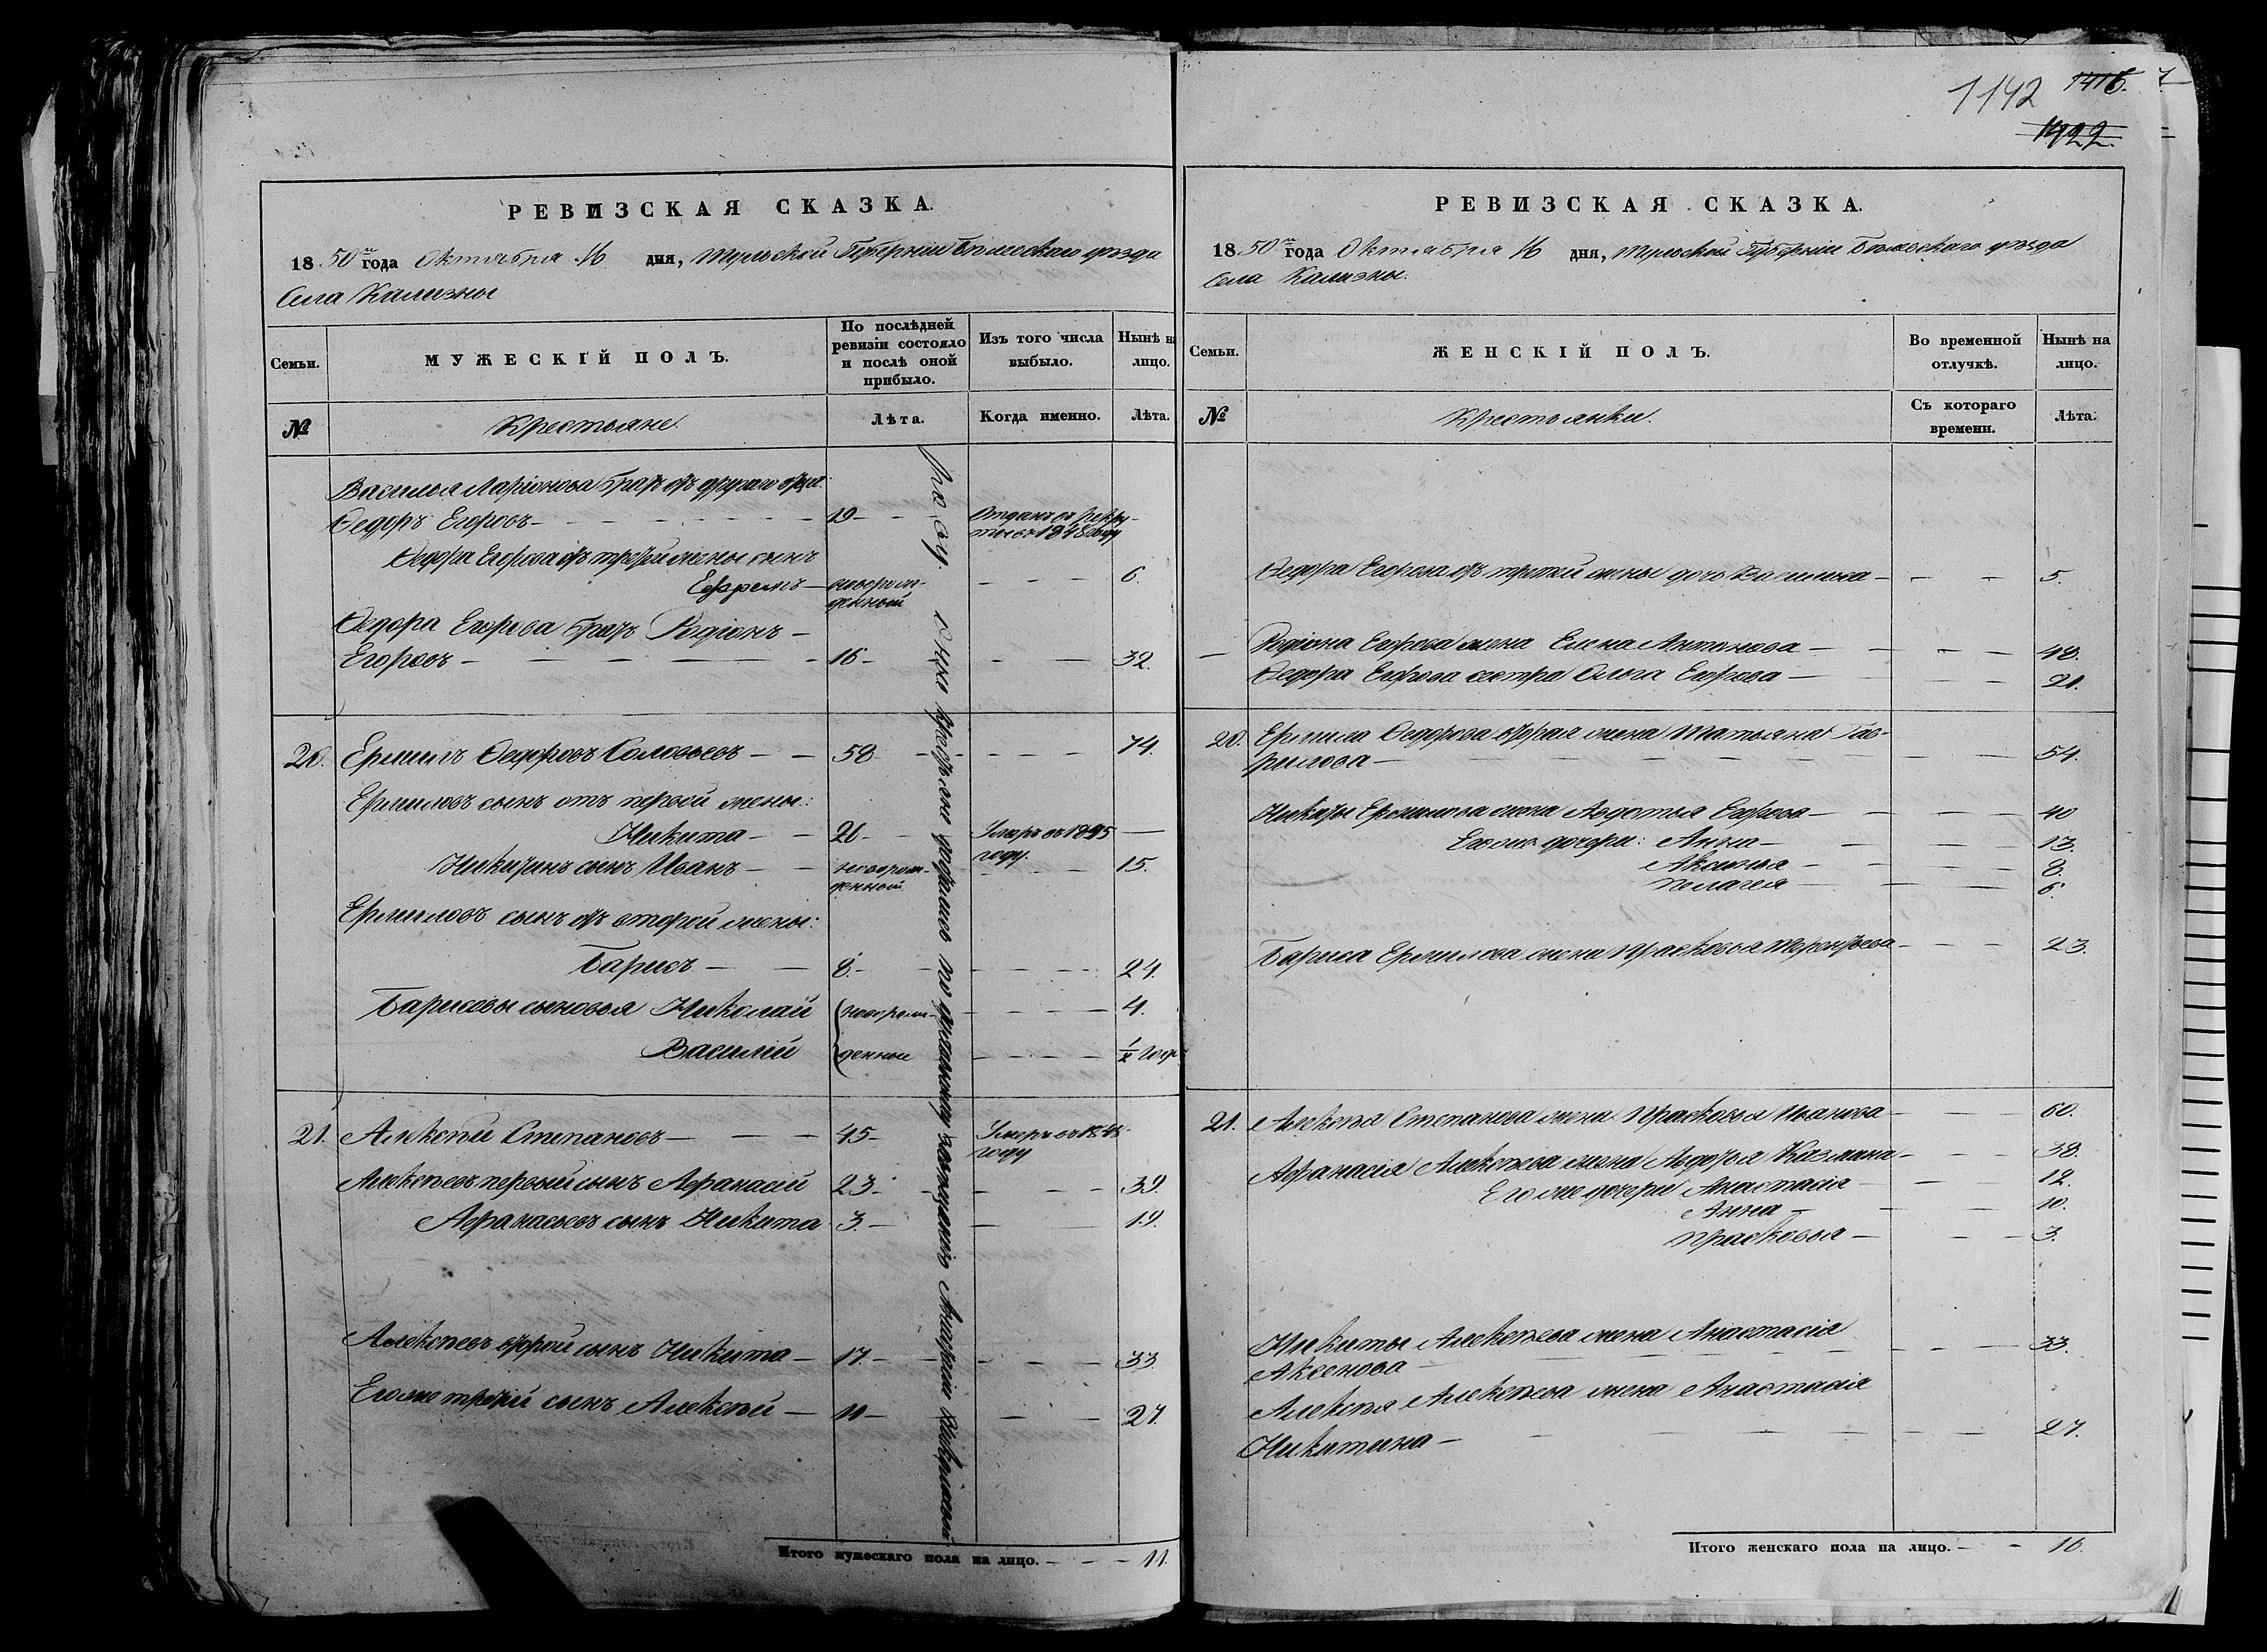 1142 1416. 7
1422.
РЕВИЗСКАЯ СКАЗКА.
18 50го года Октября 16 дня, Тульской Губерніи Бѣлевскаго уѣзда
Села Кализны
Семьи.
МУЖЕСКІЙ ПОЛЪ.
По послѣдней ревизіи состояло и послѣ оной прибыло.
Изъ того числа выбыло.
Нынѣ на лицо.
№
Крестьяне.
Лѣта.
Когда именно.
Лѣта.
Василья Ларіонова братъ отъ другаго отца
Ѳедоръ Егоровъ — 19 — Отданъ въ рекру-
ты въ 1848 году
Ѳедора Егорова отъ третьей жены сынъ
Ефремъ — новорож-
денный — 6.
Ѳедора Егорова братъ Родіонъ —
Егоровъ — 16 — 32.
20. Ермилъ Ѳедоровъ Соловьевъ — 58 — 74.
Ермиловъ сынъ отъ первой жены:
Никита — 26 — Умеръ въ 1845
году.
Никитинъ сынъ Иванъ — новорож-
денной — 15.
Ермиловъ сынъ отъ второй жены:
Барисъ — 8. — 24.
Барисовы сыновья Николай новорож- 4.
Василій денные ½ года
21. Алексѣй Степановъ — 45 — Умеръ въ
году
Алексѣевъ первый сынъ Афранасій 23 — 39.
Афранасьевъ сынъ Никита 3. — 19.
Алексѣевъ второй сынъ Никита — 17 — 33.
Его же третій сынъ Алексѣй — 11 — 27.
Итого мужескаго пола на лицо. — 11.
РЕВИЗСКАЯ СКАЗКА.
18 50го года Октября 16 дня, Тульской Губерніи Бѣлевскаго уѣзда
Села Кализны.
Семьи.
ЖЕНСКІЙ ПОЛЪ.
Во временной отлучкѣ.
Нынѣ на лицо.
№
Крестьянки.
Съ котораго времени.
Лѣта.
Ѳедора Егорова отъ третьей жены дочь Василиса — 5.
Родіона Егорова жена Елена Антонова — 48.
Ѳедора Егорова сестра Ольга Егорова — 21.
20. Ермила Ѳедорова вторая жена Матьяна Гав-
рилова — 54.
Никиты Ермилова жена Авдотья Егорова — 40
Его же дочери: Анна — 13.
Аксинья — 8.
Пелагея — 6.
Бариса Ермилова жена Прасковья Терентьева — 23.
21. Алексѣя Степанова жена Прасковья Иванова — 60.
Афранасія Алексѣева жена Авдотья Казмина — 38.
Его же дочери Анастасія — 12.
Анна — 10.
Прасковья — 3.
Никиты Алексѣева жена Анастасія
Аксенова — 33.
Алексѣя Алексѣева жена Анастасія
Никитина — 27.
Итого женскаго пола на лицо. — 16.